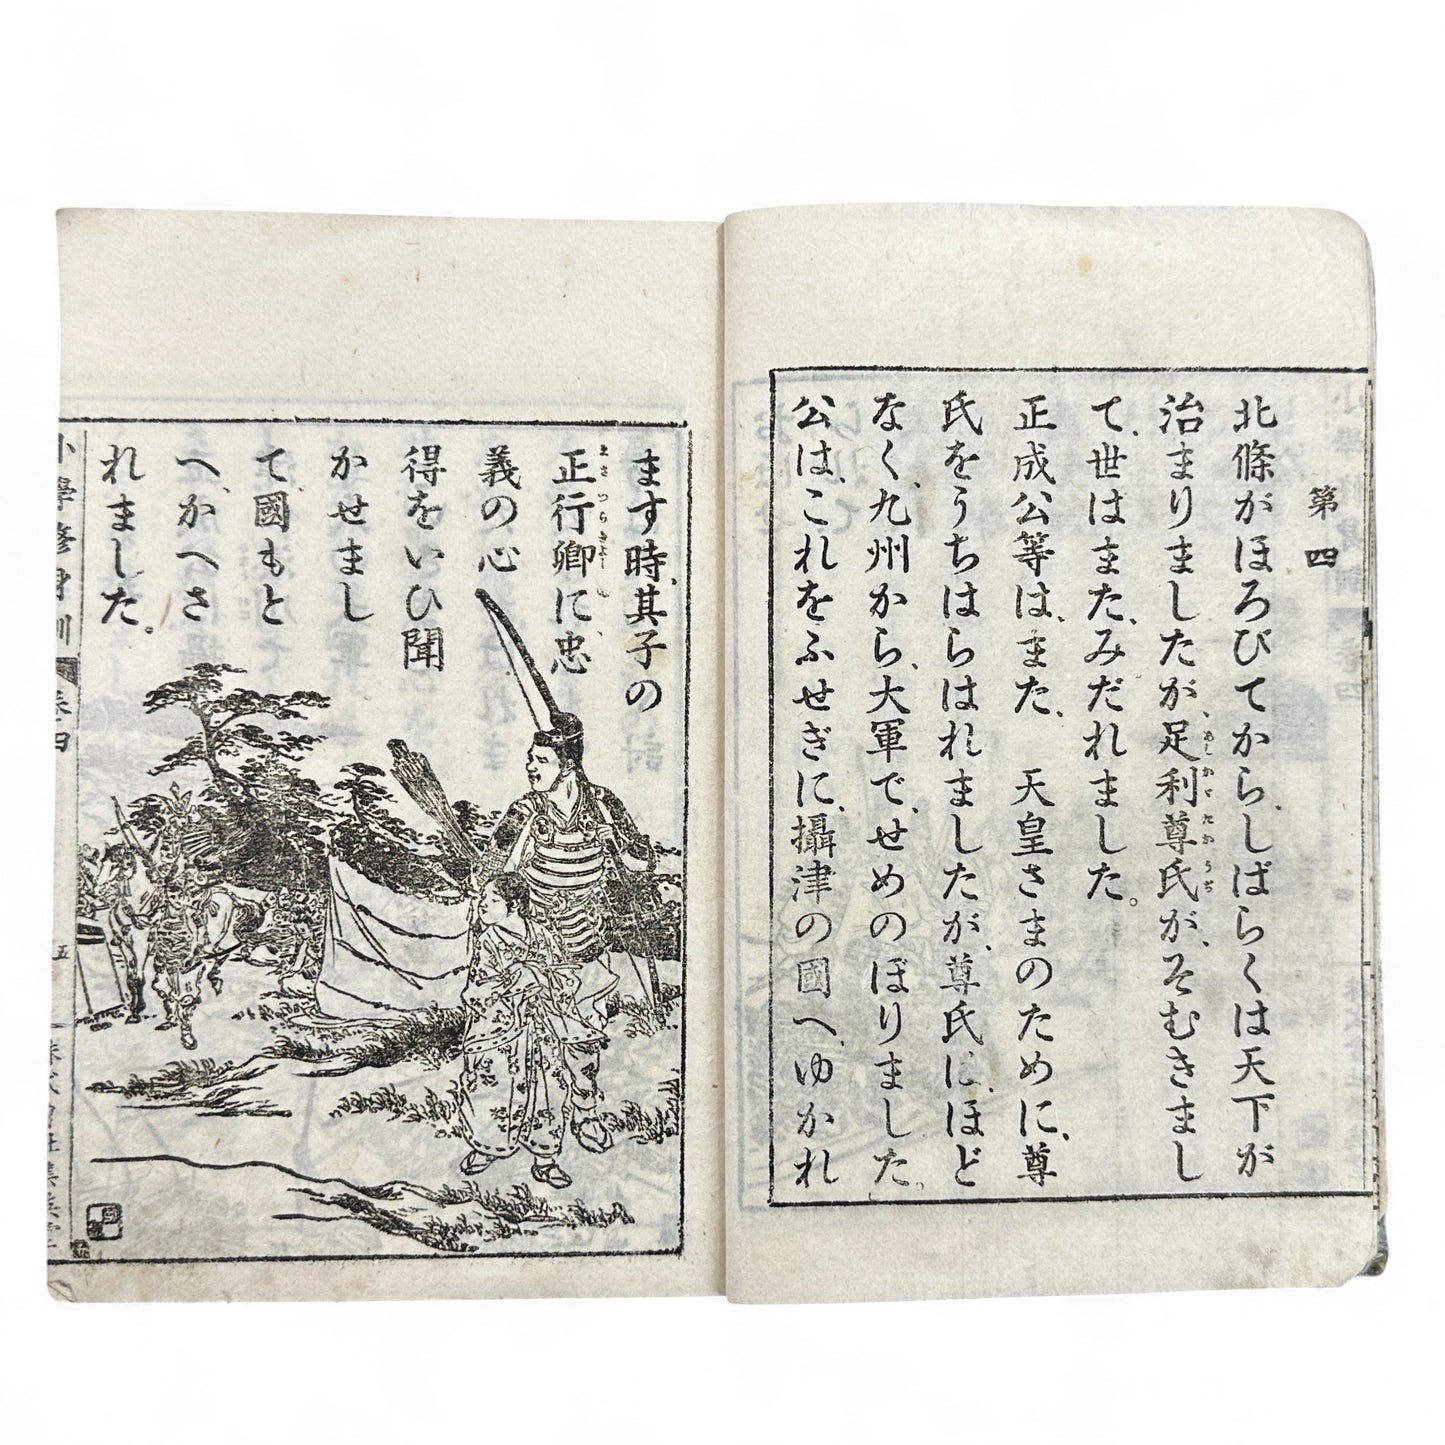 第四
北條がほろびてから、しばらくは天下が
治まりましたが、足利尊氏が、そむきまし
て、世はまた、みだれました。
正成公等は、また、　天皇さまのために、尊
氏をうちはらはれましたが、尊氏に、ほど
なく、九州から、大軍で、せめのぼりました。
公は、これをふせぎに、攝津の國へ、ゆかれ
ます時、其子の
正行卿に、忠
義の心
得をいひ聞
かせまし
て國もと
へ、かへさ
れました。
小學修身訓 卷四
五